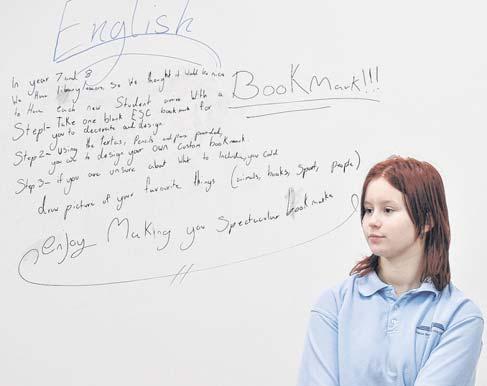 English
In year 7 and 8
We Have library lessons. So We thought it would be nice
to Have each new Student arrive With a
BooKMark!!!
Step 1- Take one blank ESC bookmark for
you to decorate and design.
Step 2- Using the textas, Pencils and pens provided,
you are to design your own custom bookmark.
Step 3- if you are unsure about What to Include, you Could
draw picture of your favourite things (animals, books, sport, people)
enjoy Making you Spectacular bookmark